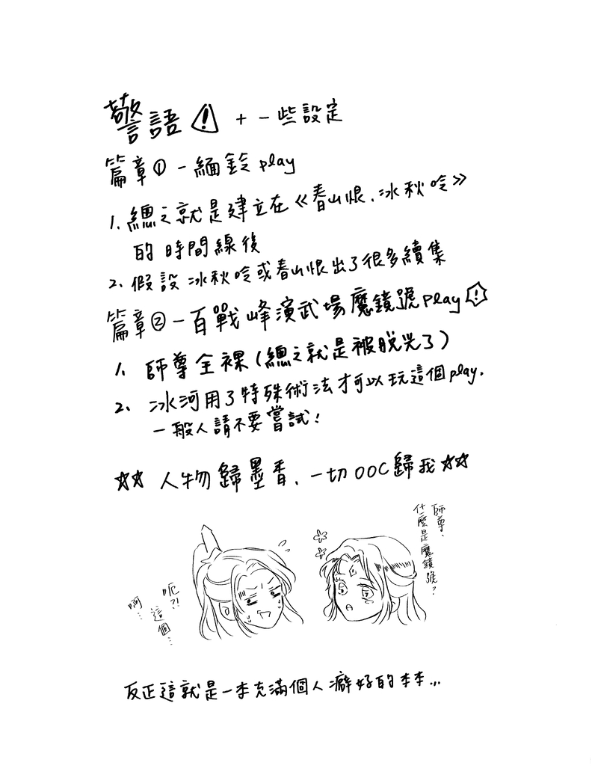 警語⚠ + 一些設定
篇章① - 緬鈴 play
1. 總之就是建立在《春山恨、冰秋吟》
的時間線後
2. 假設冰秋吟或春山恨出了很多續集
篇章② - 百戰峰演武場魔鏡號play!
1. 師尊全裸(總之就是被脫光了)
2. 冰河用了特殊術法才可以玩這個play.
一般人請不要嘗試!
☆☆ 人物歸墨香、一切OOC歸我☆☆
師尊.
什麼是魔鏡號?
呃?!
這個…
啊…
反正這就是一本充滿個人癖好的本本...